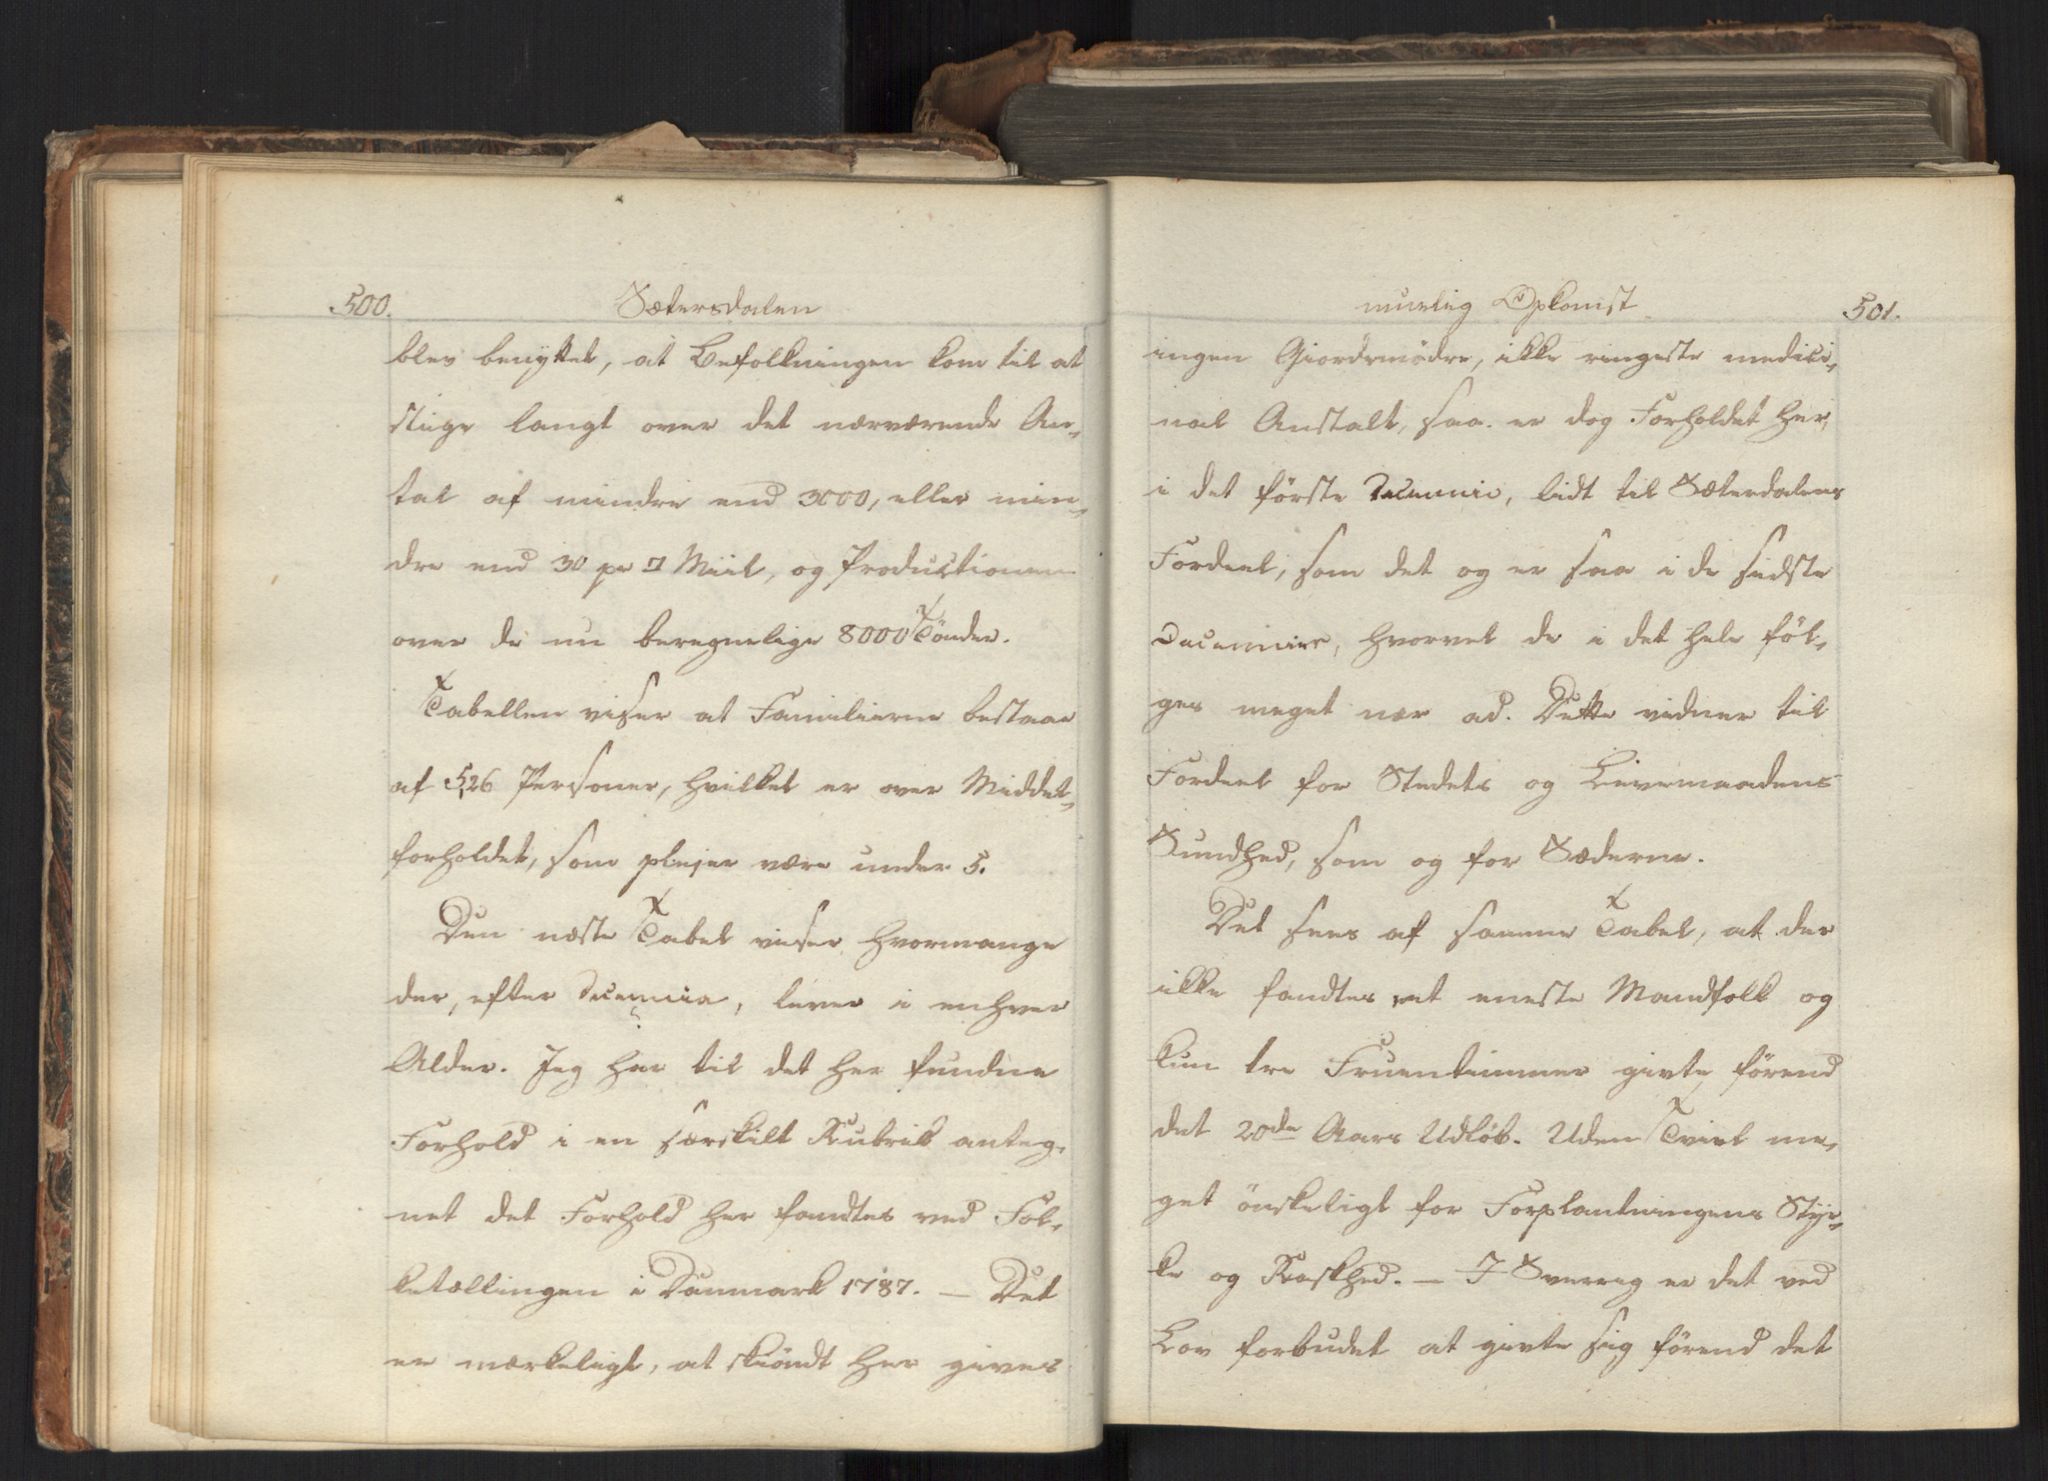 500.
Sætersdalen
blev benyttet, at Befolkningen kom til at
stige langt over det nærværende An-
tal af mindre end 3000, eller min-
dre end 30 pr □ Miil, og Productionen
over de nu beregnelige 8000 Tönder.
Tabellen viser at Familierne bestaae
af 5,26 Personer, hvilket er over Middel-
forholdet, som plejer være under 5.
Den næste Tabel viser hvormange
der, efter Decennia, lever i enhver
Alder. Jeg har til det her fundne
Forhold i en særskilt Rubrik anteg-
net det Forhold her fandtes ved Fol-
ketællingen i Danmark 1787. — Det
er mærkeligt, at skiöndt her gives
muelig Opkomst
501.
ingen Giordemödre, ikke ringeste medici-
nal Anstalt, saa er dog Forholdet her,
i det förste Decennie, lidt til Sæterdalens
Fordeel, som det og er saa i de sidste
Decennier, hvorvel de i det hele föl-
ges meget nær ad. Dette vidner til
Fordeel for Stedets og Levemaadens
Sundhed, som og for Sæderne.
Det sees af samme Tabel, at der
ikke fandtes et eneste Mandfolk og
kun tre Fruentimmer givte förend
det 20de Aars Udlöb. Uden Tvivl me-
get önskeligt for Forplantningens Styr-
ke og Raskhed. — I Sverrig er det ved
Lov forbudet at givte sig förend det